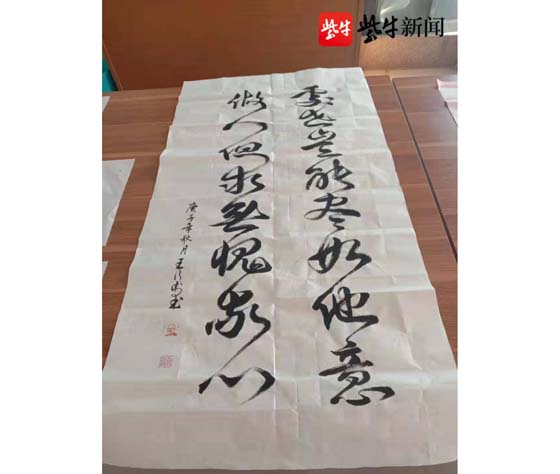 紫牛 紫牛新闻
处世岂能尽如他意
做人但求无愧我心
庚子年秋月王书